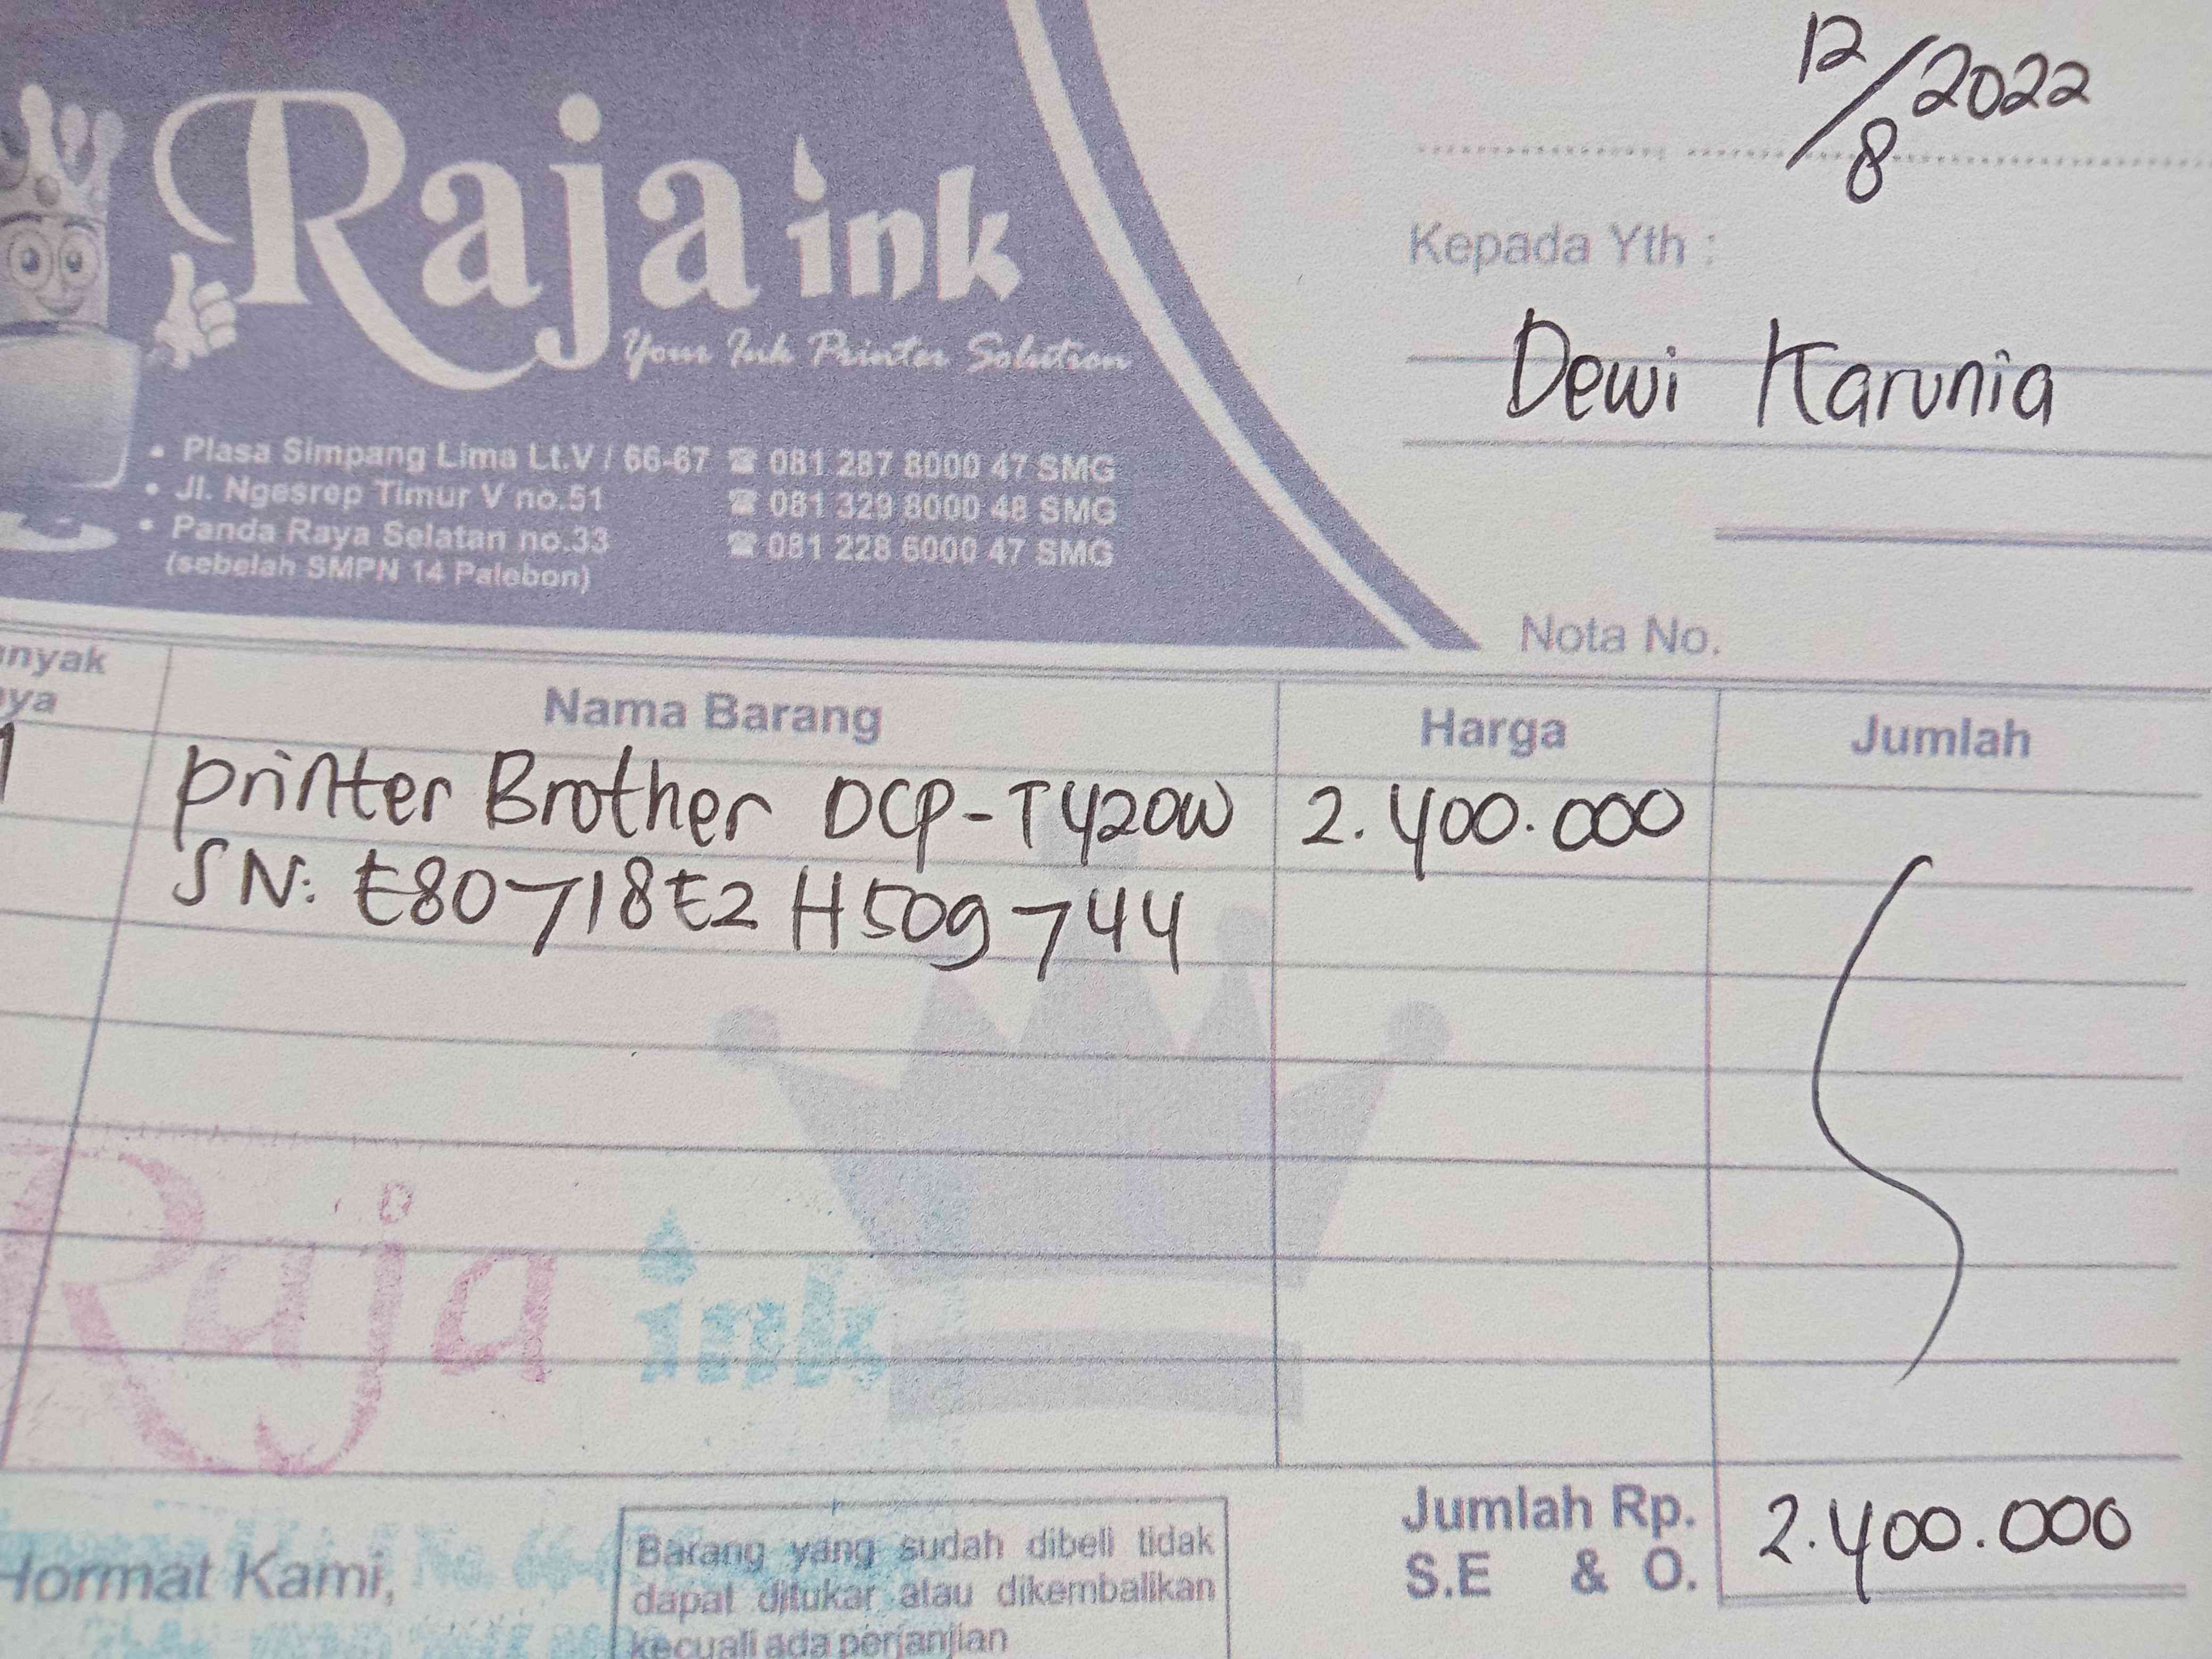 Raja ink
Your Ink Printer Solution
• Plasa Simpang Lima Lt.V / 66-67 ☎ 081 287 8000 47 SMG
• Jl. Ngesrep Timur V no.51 ☎ 081 329 8000 48 SMG
• Panda Raya Selatan no.33 ☎ 081 228 6000 47 SMG
(sebelah SMPN 14 Palebon)
12/8 2022
Kepada Yth :
Dewi Karunia
Nota No.
anyak
nya
Nama Barang
Harga
Jumlah
1 printer Brother DCP-T420W 2.400.000
SN: E80718E2H509744
Raja ink
Hormat Kami,
Barang yang sudah dibeli tidak
dapat ditukar atau dikembalikan
kecuali ada perjanjian
Jumlah Rp. 2.400.000
S.E & O.